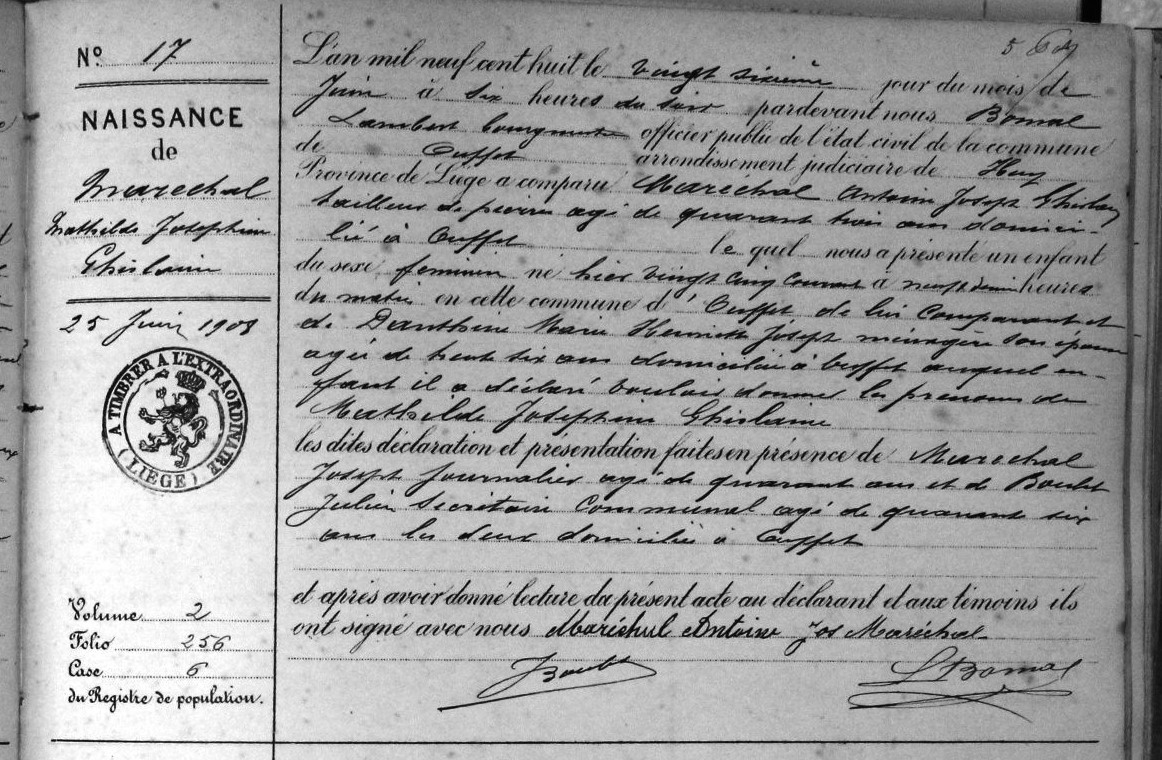 Nº 17
NAISSANCE
de
Maréchal
Mathilde Josephine
Ghislaine
25 Juin 1908
A TIMBRER A L'EXTRAORDINAIRE
(LIÈGE)
Volume 2
Folio 256
Case 6
du Registre de population.
5
L'an mil neuf cent huit le vingt sixième jour du mois de
Juin à six heures du soir pardevant nous Bomal
Lambert bourgmestre officier public de l'état civil de la commune
de Ouffet arrondissement judiciaire de Huy
Province de Liége a comparu Maréchal Antoine Joseph Ghislain
tailleur de pierres agé de quarant trois ans domici-
lié à Ouffet le quel nous a présenté un enfant
du sexe feminin né hier vingt cinq courant à neuf demi heures
du matin en cette commune d'Ouffet de lui comparant et
de Danthine Marie Henriette Joseph ménagère son épouse
agée de trente six ans domiciliée à Ouffet auquel en-
fant il a déclaré vouloir donner les prenoms de
Mathilde Josephine Ghislaine
les dites déclaration et présentation faites en présence de Marechal
Joseph journalier agé de quarant ans et de Boulet
Julien Secrétaire Communal agé de quarante six
ans les deux domiciliés à Ouffet
et après avoir donné lecture du présent acte au déclarant et aux témoins ils
ont signé avec nous Maréchal Antoine Jos Maréchal
JBoulet
LBomal